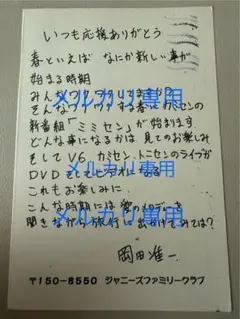 いつも応援ありがとう
春といえば なにか新しい事が
始まる時期
メルカリ専用
そんな
春にカミセンの
新番組「ミミセン」が始まります
どんな事になるかは見てのお楽しみ
そしてV6 カミセン、トニセンのライブが
メルカリ専用
DVD
これもお楽しみに
こんな時期には
メルカリ専用
聞きながら旅行に出かけてみては?
岡田准一
〒150-8550 ジャニーズファミリークラブ